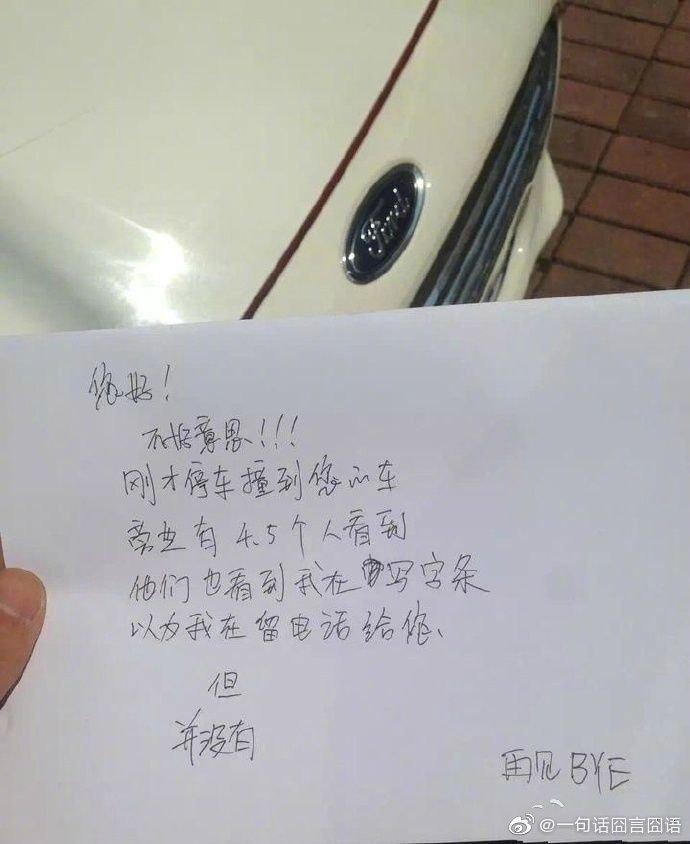 Ford
您好!
不好意思!!!
刚才停车撞到您的车
旁边有4.5个人看到
他们也看到我在写字条
以为我在留电话给您、
但
并没有
再见 BYE
@一句话囧言囧语